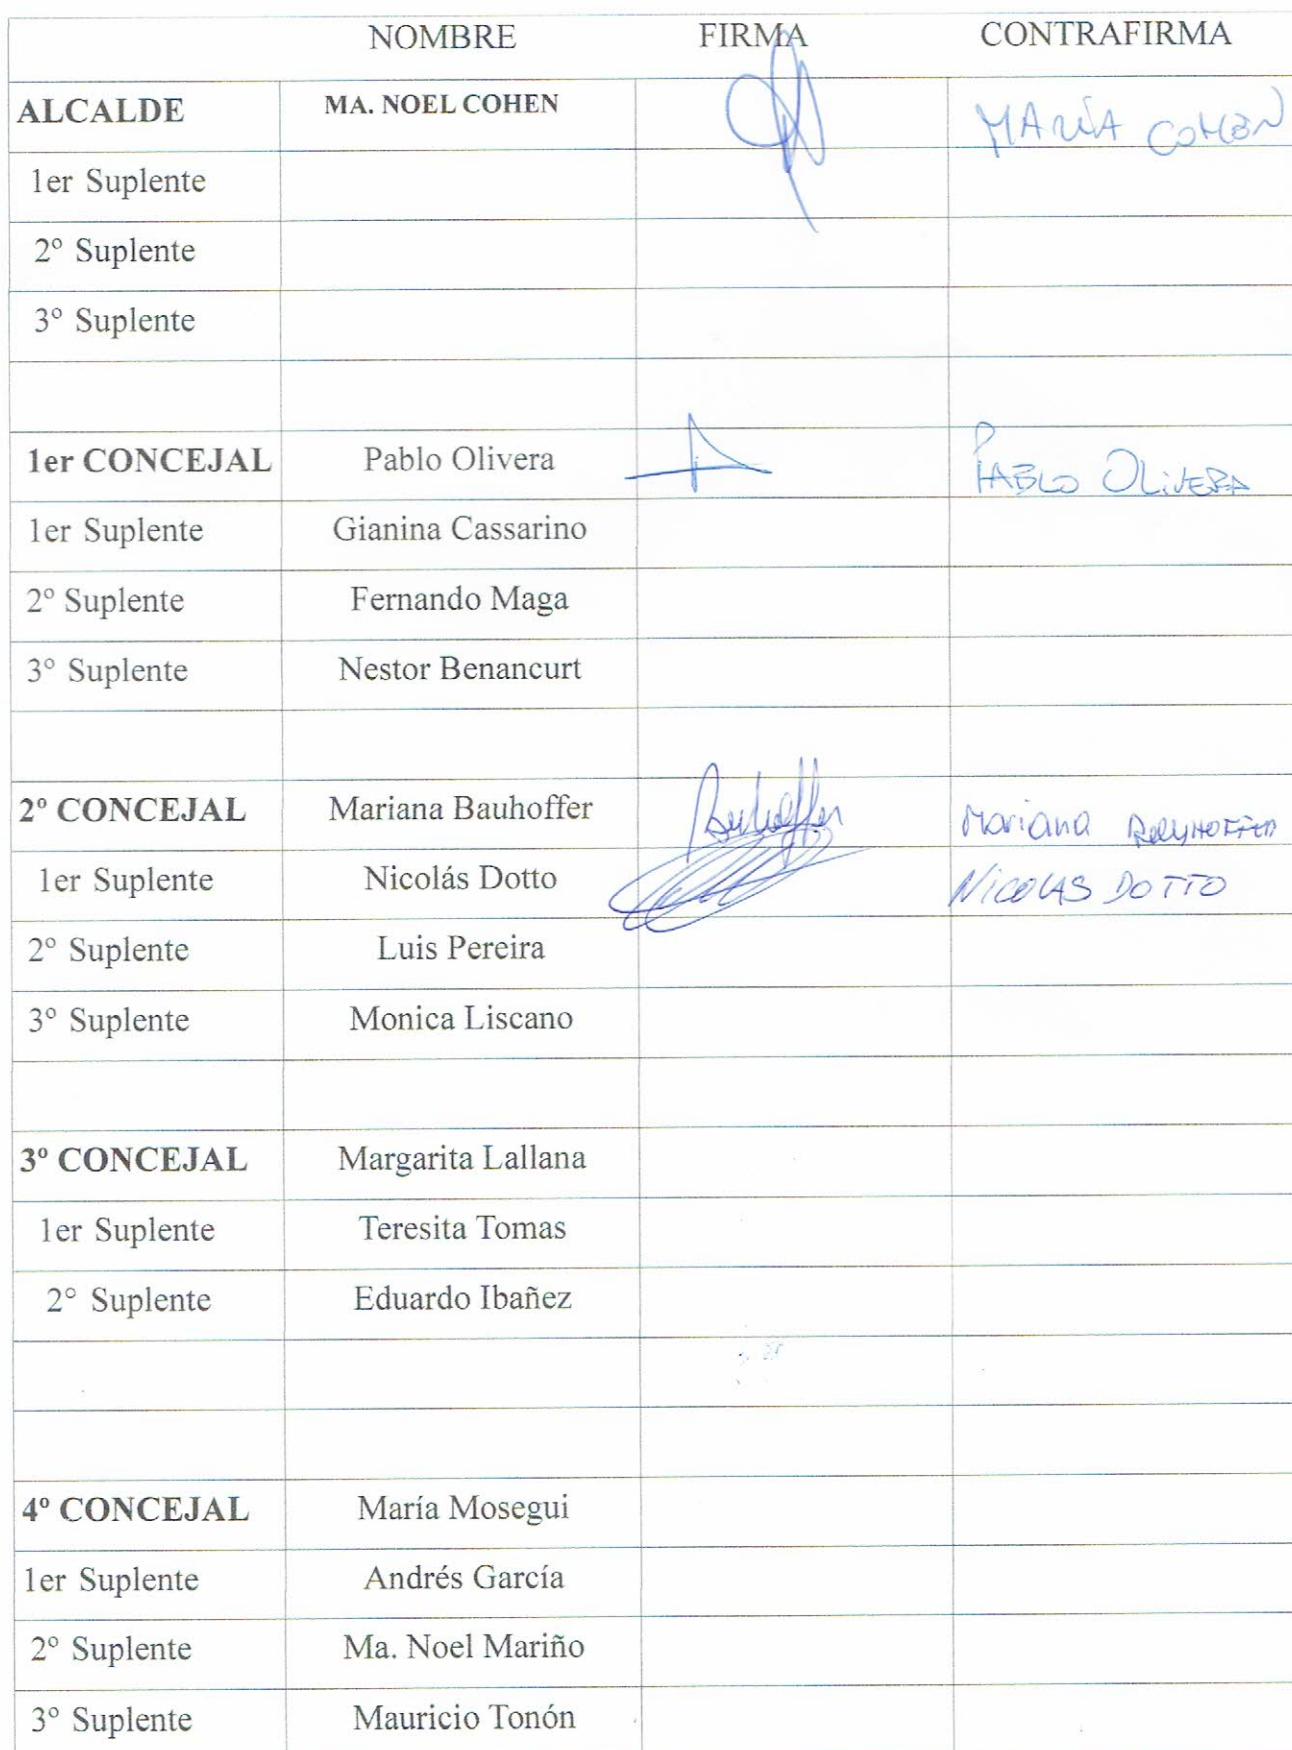 NOMBRE FIRMA CONTRAFIRMA
ALCALDE MA. NOEL COHEN MARÍA COHEN
1er Suplente
2º Suplente
3º Suplente
1er CONCEJAL Pablo Olivera PABLO OLIVERA
1er Suplente Gianina Cassarino
2º Suplente Fernando Maga
3º Suplente Nestor Benancurt
2º CONCEJAL Mariana Bauhoffer Bauhoffer Mariana BAUHOFFER
1er Suplente Nicolás Dotto NICOLAS DOTTO
2º Suplente Luis Pereira
3º Suplente Monica Liscano
3º CONCEJAL Margarita Lallana
1er Suplente Teresita Tomas
2° Suplente Eduardo Ibañez
4º CONCEJAL María Mosegui
1er Suplente Andrés García
2º Suplente Ma. Noel Mariño
3º Suplente Mauricio Tonón